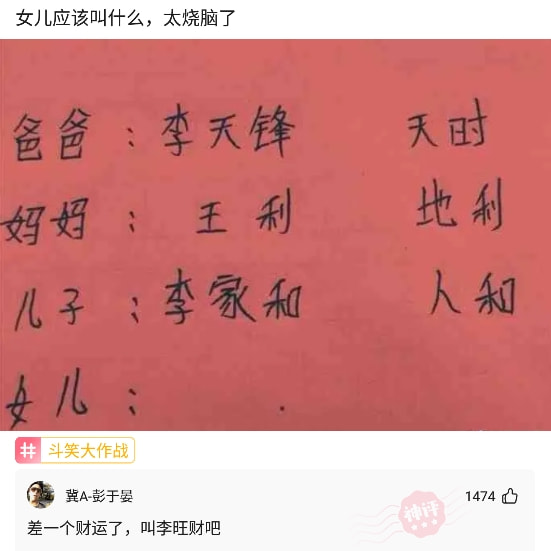 女儿应该叫什么，太烧脑了
爸爸：李天锋 天时
妈妈：王利 地利
儿子：李家和 人和
女儿：
斗笑大作战
冀A-彭于晏 1474
神评
差一个财运了，叫李旺财吧